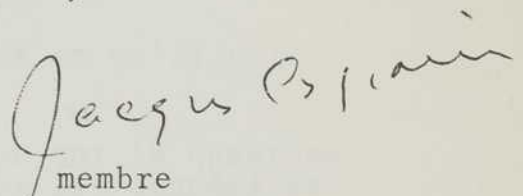 Jacques
membre